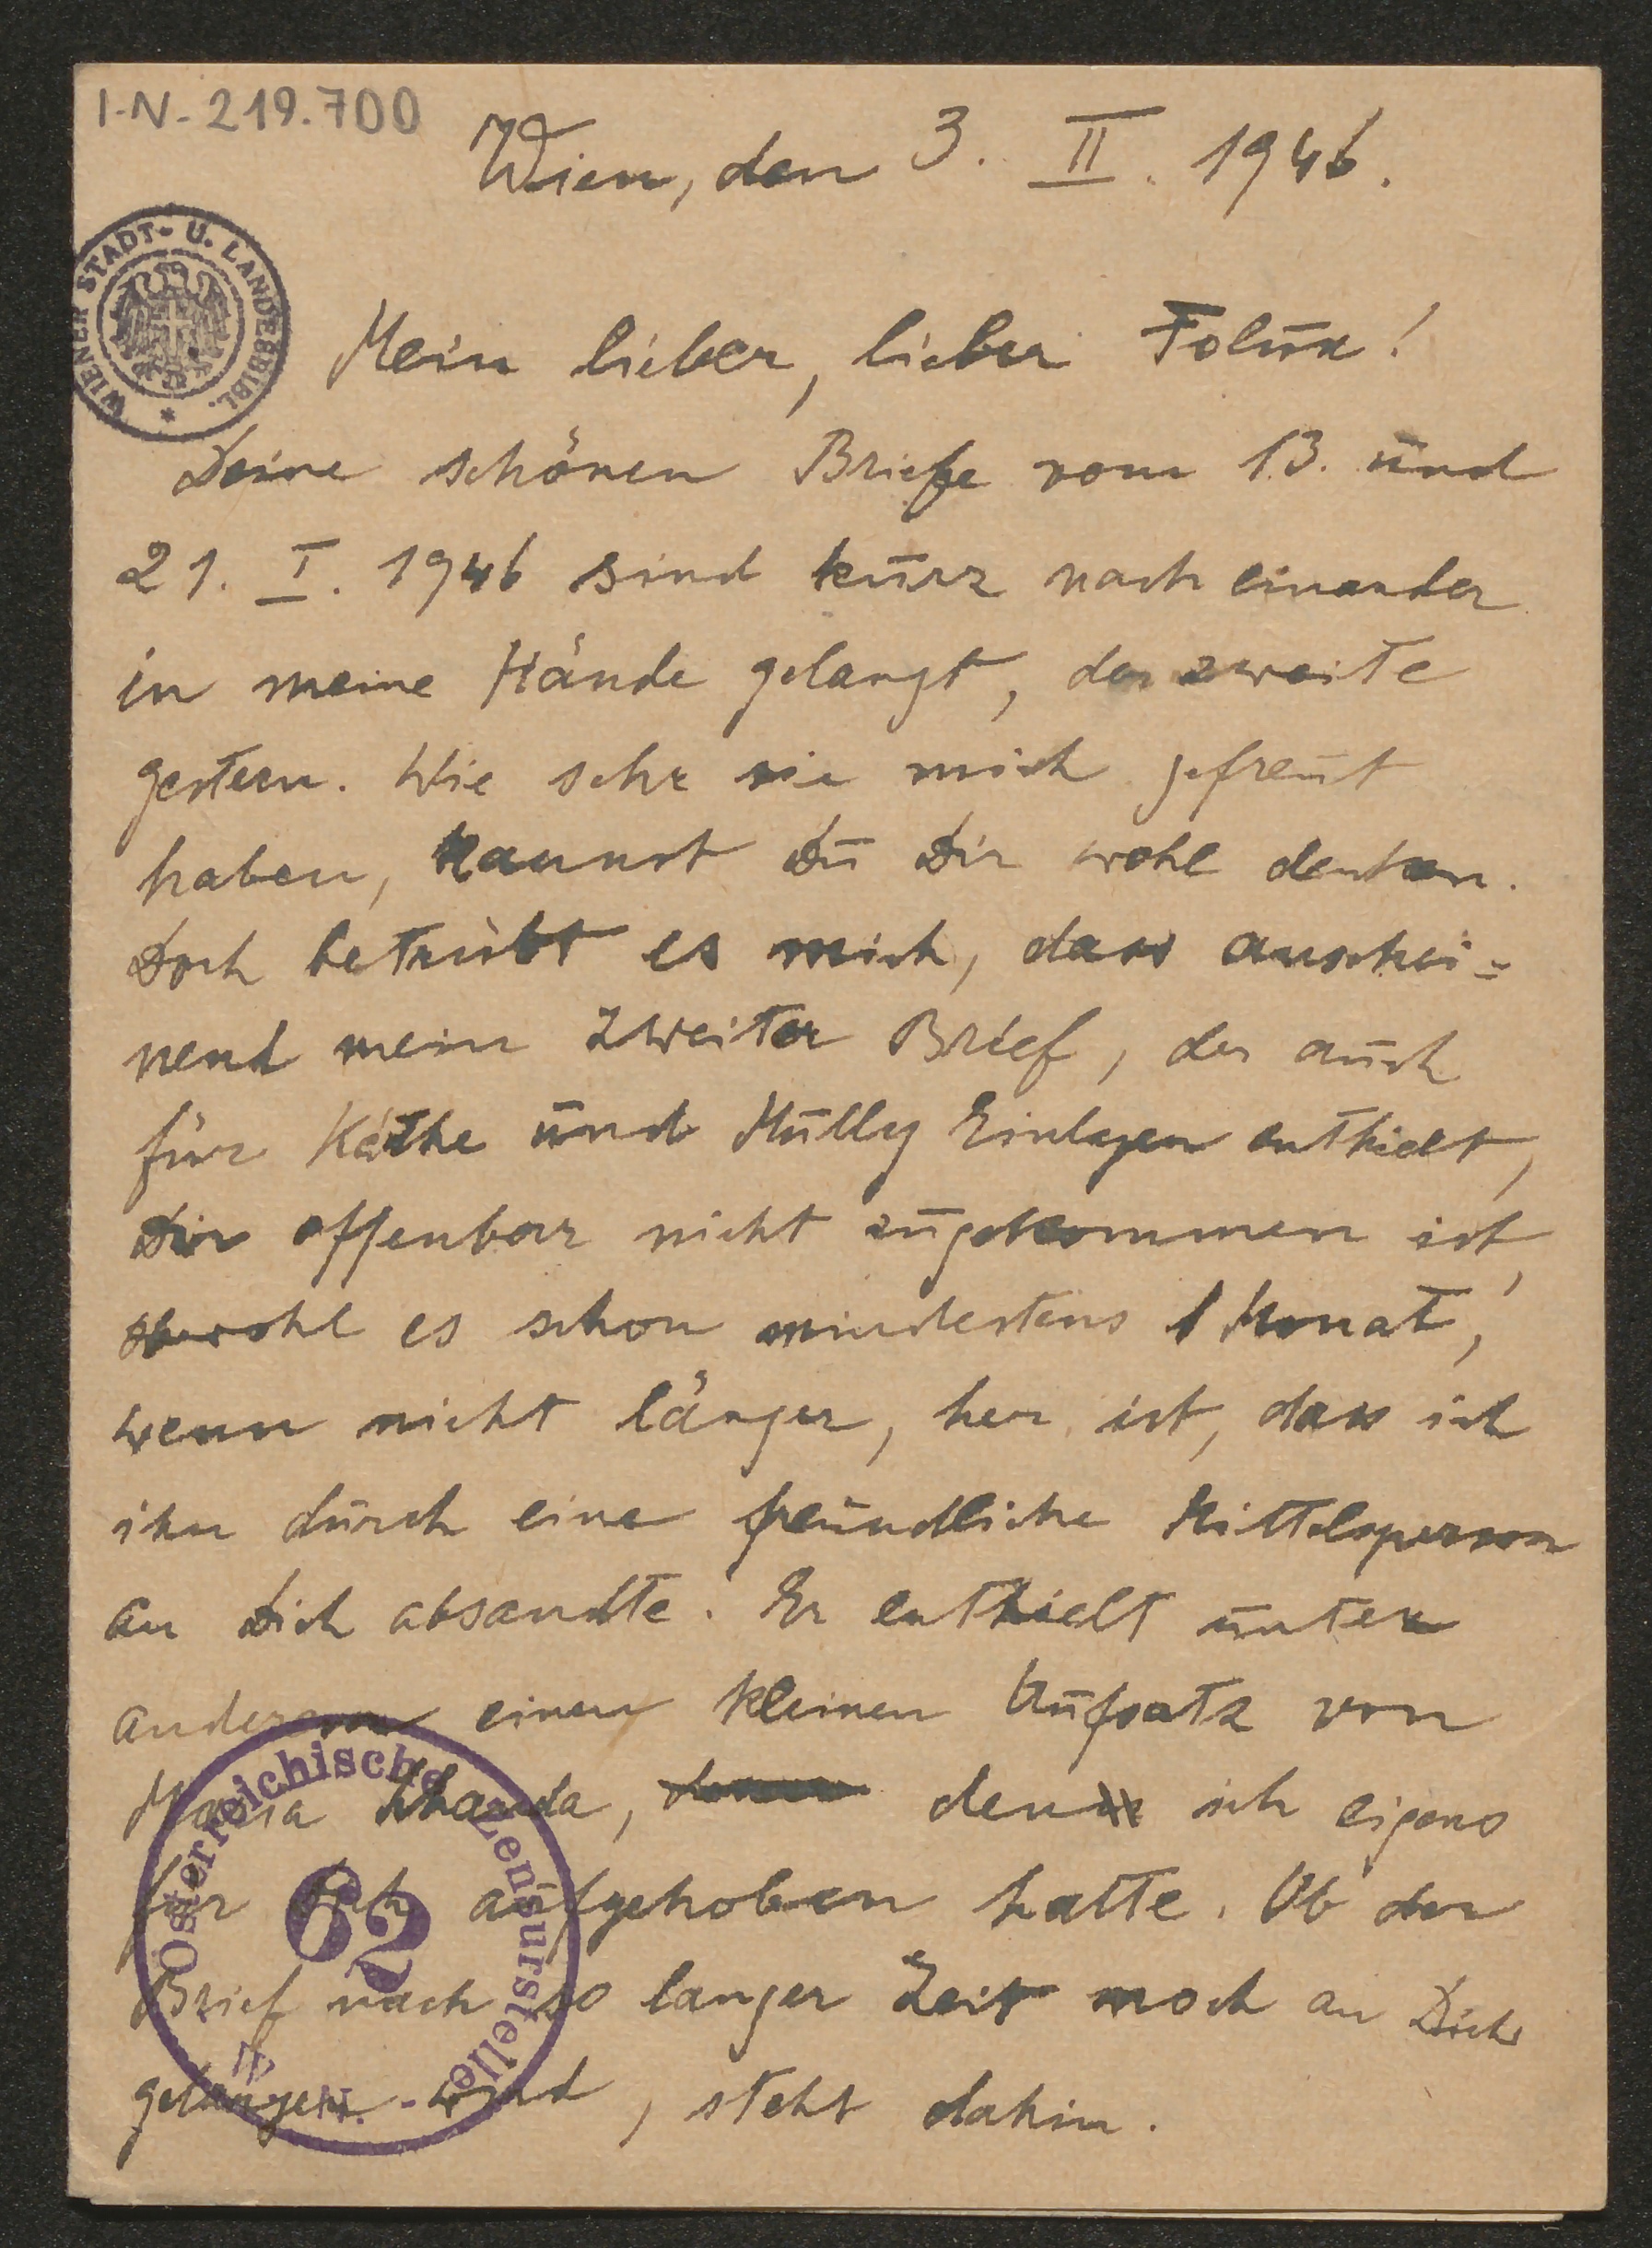 I-N-219.700
Wien, den 3. II. 1946.
WIENER STADT- U. LANDESBIBL. *
Mein lieber, lieber Felix!
Deine schönen Briefe vom 13. und
21. I. 1946 sind kurz nach einander
in meine Hände gelangt, der zweite
gestern. Wie sehr sie mich gefreut
haben, kannst Du Dir wohl denken.
Doch betrübt es mich, dass anschei=
nend mein zweiter Brief, der auch
für Käthe und Mully Einlagen enthielt,
Dir offenbar nicht zugekommen ist,
obwohl es schon mindestens 1 Monat,
wenn nicht länger, her ist, dass ich
ihn durch eine freundliche Mittelsperson
an Dich absandte. Er enthielt unter
anderem einen kleinen Aufsatz von
Maria, den ich eigens
für Dich aufgehoben hatte. Ob der
Brief nach so langer Zeit noch an Dich
gelangen wird, steht dahin.
Österreichische Zensurstelle
62